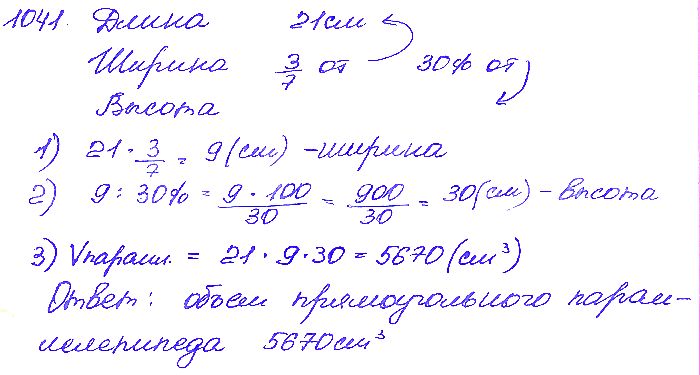 1041. Длина 21см
Ширина 3/7 от 30% от
Высота
1) 21 · 3/7 = 9 (см) - ширина
2) 9 : 30% = 9 · 100/30 = 900/30 = 30 (см) - высота
3) Vпаралл. = 21 · 9 · 30 = 5670 (см³)
Ответ: объем прямоугольного парал-
лелепипеда 5670см³